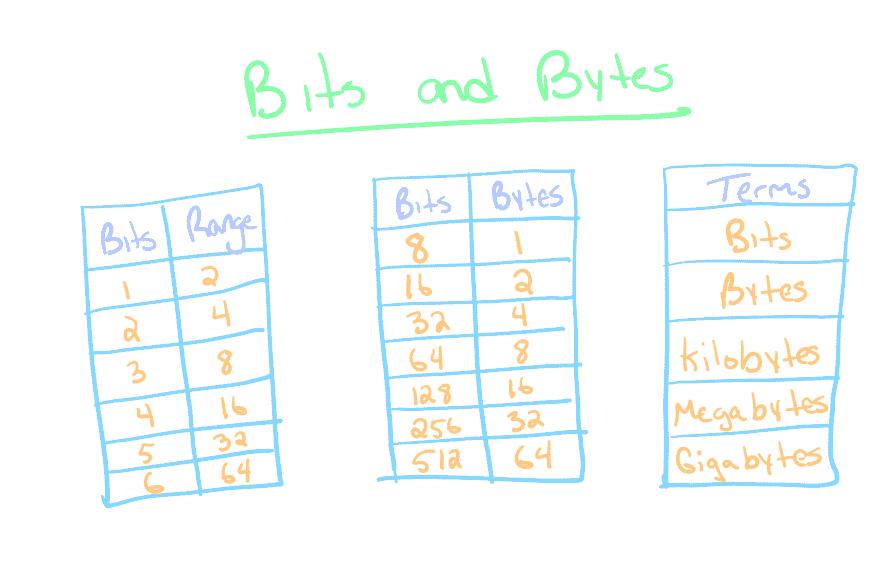 Bits and Bytes
Bits Range
1 2
2 4
3 8
4 16
5 32
6 64
Bits Bytes
8 1
16 2
32 4
64 8
128 16
256 32
512 64
Terms
Bits
Bytes
Kilobytes
Megabytes
Gigabytes